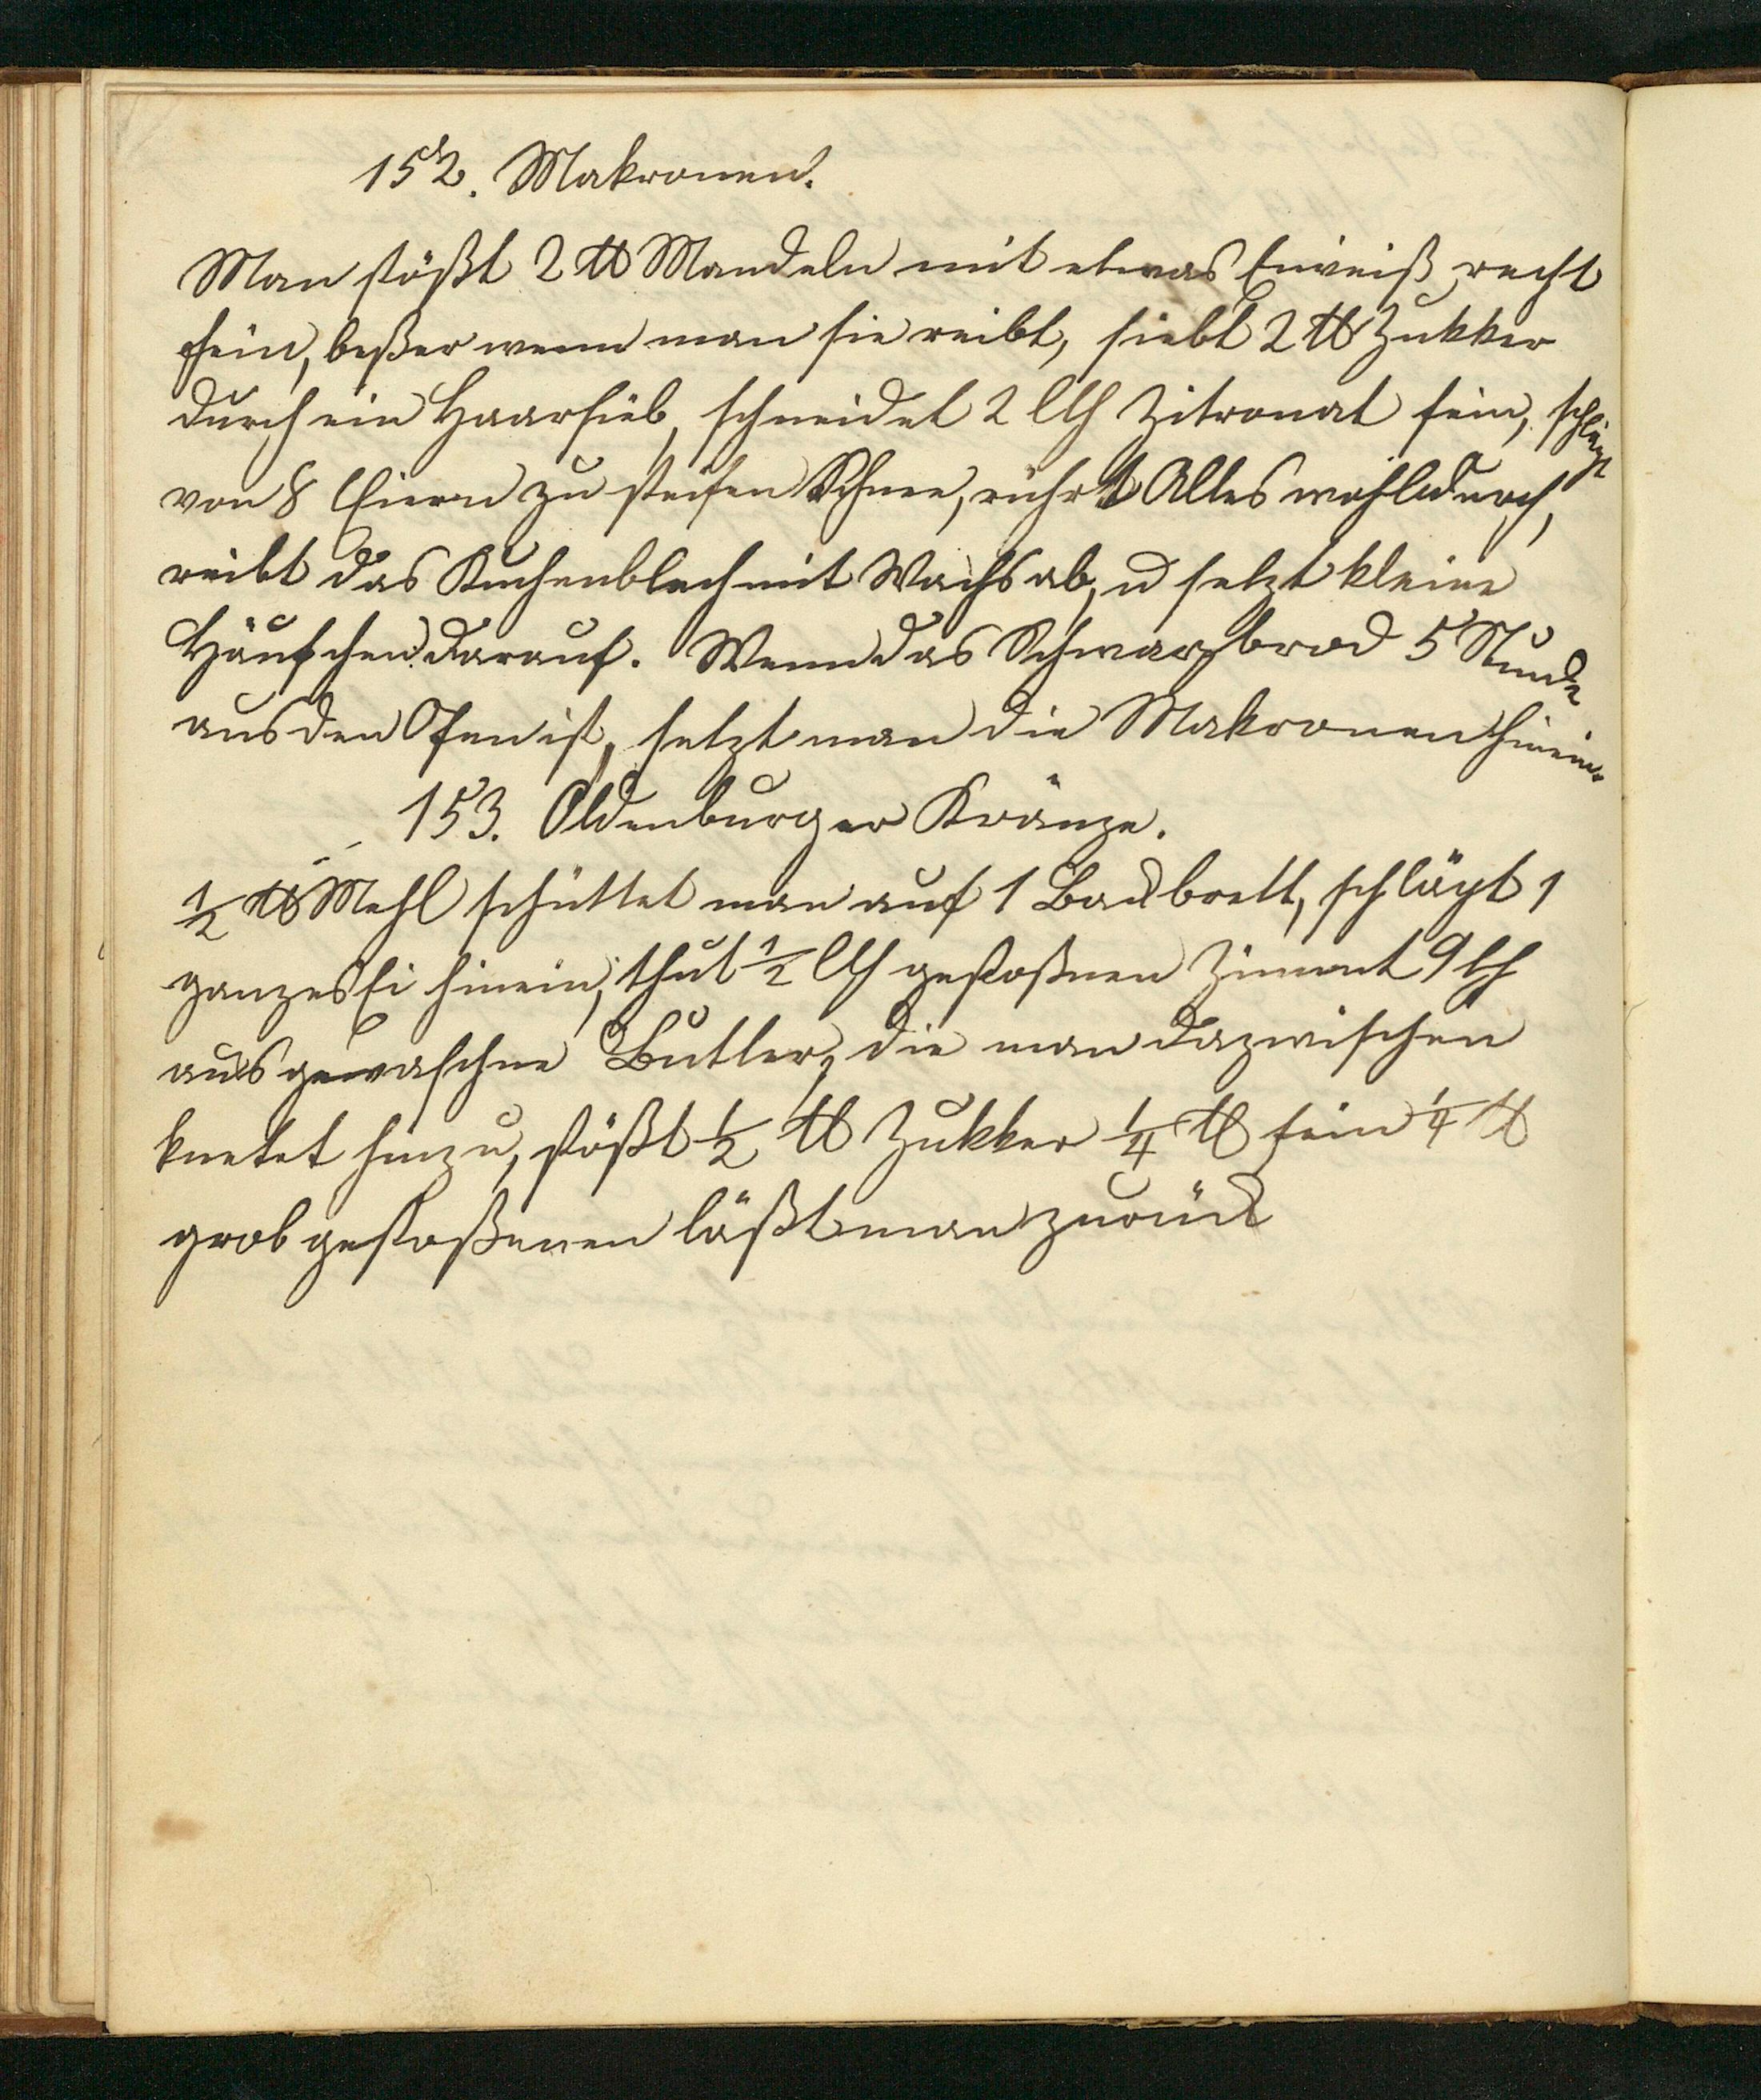 152. Makronen.
Man stößt 2 ℔ Mandeln mit etwas Eiweiß recht
fein, beßer wenn man sie reibt, siebt 2 ℔ Zukker
durch ein Haarsieb, schneidet 2 Lth Zitronat fein, schlägt
von 8 Eiern zu steifen Schnee, rührt Alles wohl durch,
reibt das Kuchenblech mit Wachs ab, u setzt kleine
Häufchen darauf. Wenn das Schwarzbrod 5 Stunde
aus den Ofen ist, setzt man die Makronen hinein.
153. Oldenburger Kränze.
½ ℔ Mehl schüttet man auf 1 Backbrett, schlägt 1
ganzes Ei hinein, thut ½ Lth gestoßnen Zimmt 9 Lth
ausgewaschne Butter, die man dazwischen
knetet hinzu, stößt ½ ℔ Zukker ¼ ℔ fein ¼ ℔
grob gestoßenen läßt man zurück